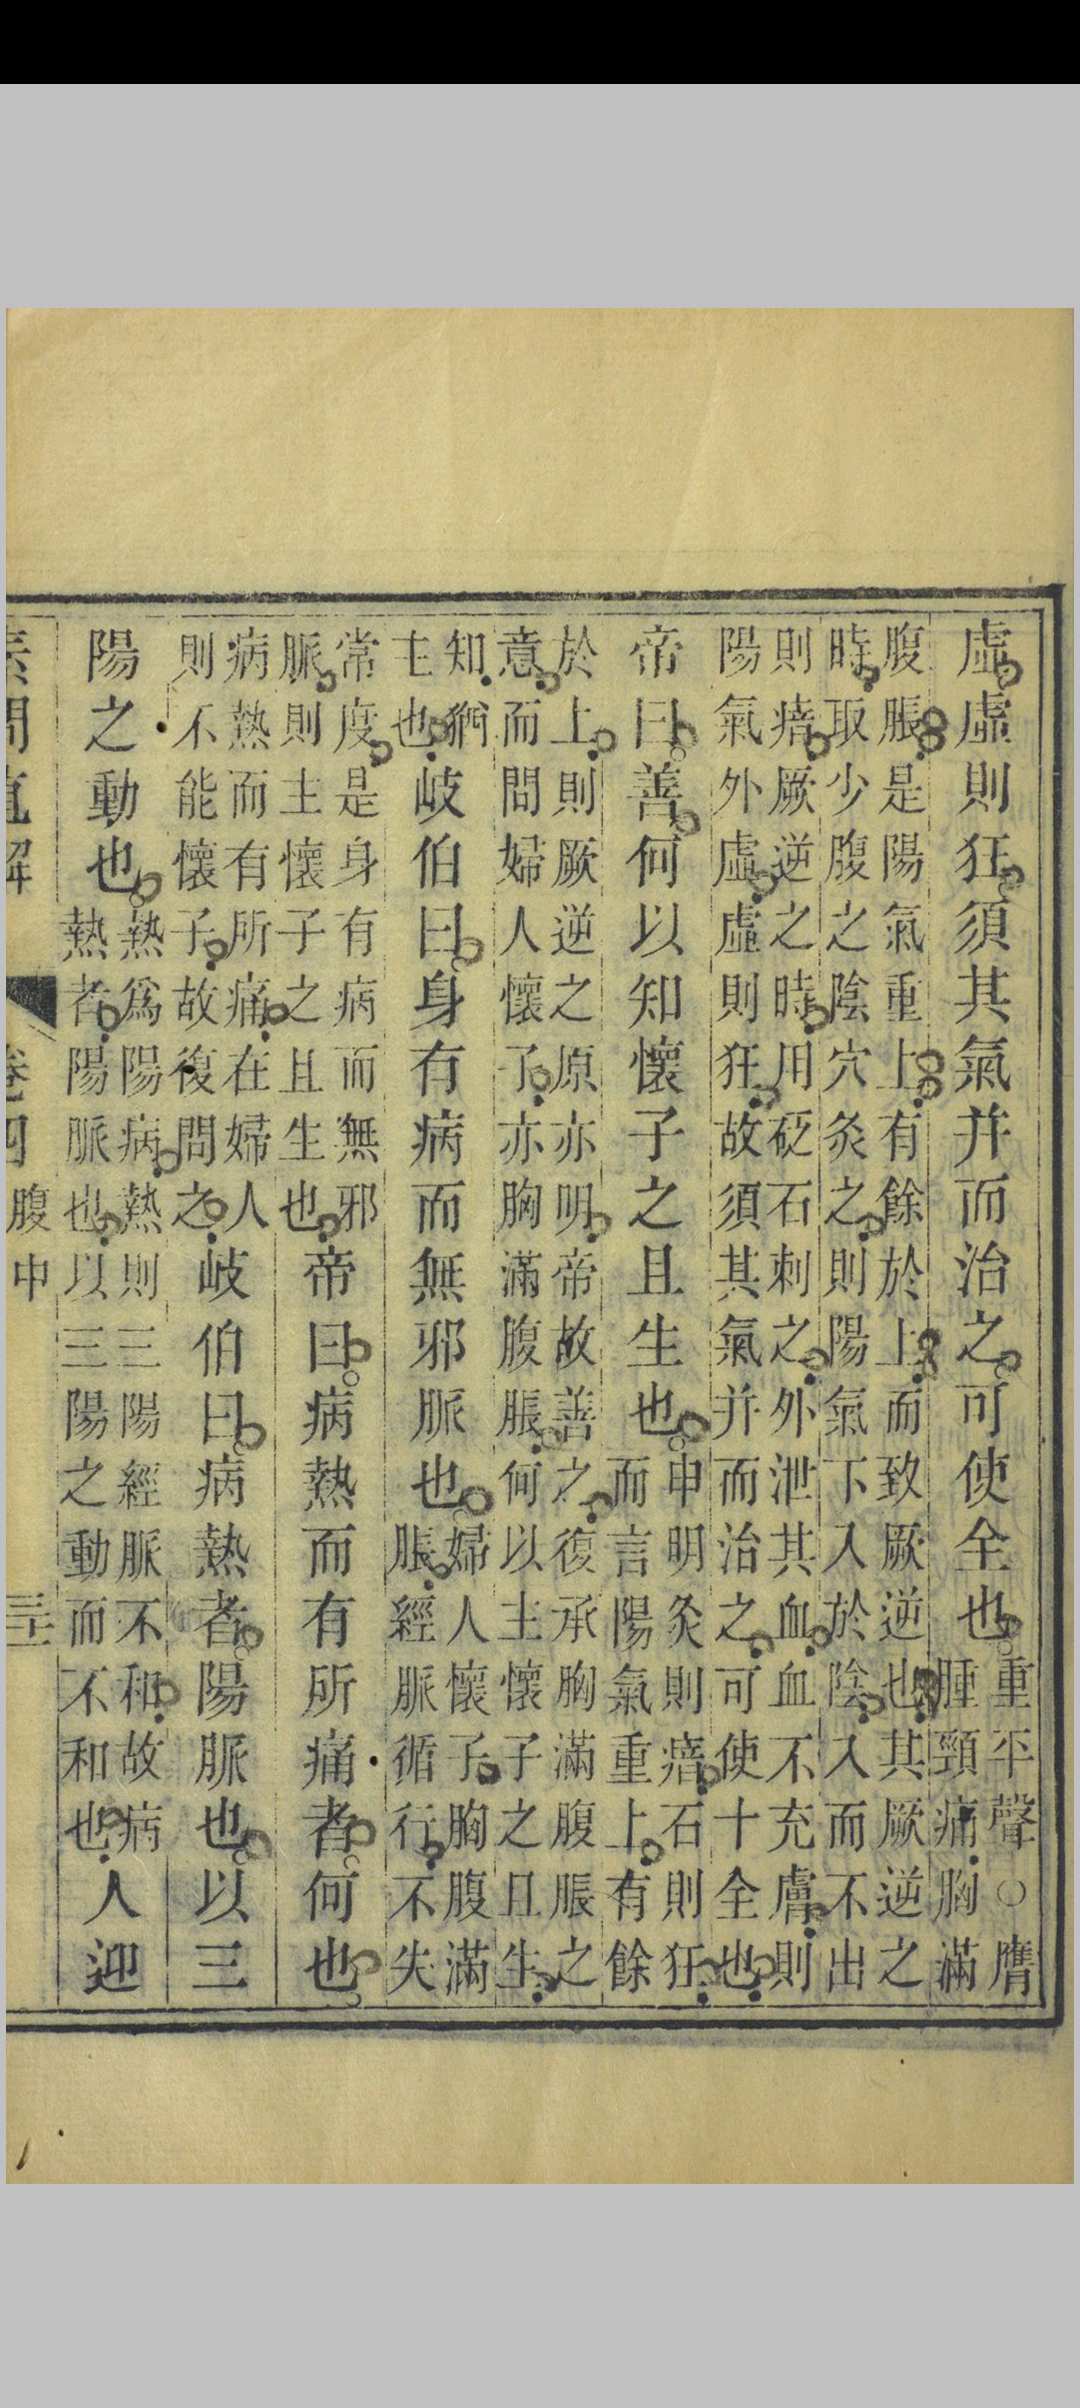 虛虛則狂須其氣并而治之可使全也
重平聲○膺
腫頸痛胸滿
腹脹是陽氣重上有餘於上而致厥逆也其厥逆之
時取少腹之陰穴灸之則陽氣下入於陰入而不出
則瘖厥逆之時用砭石刺之外泄其血血不充膚則
陽氣外虛虛則狂故須其氣并而治之可使十全也
帝曰善何以知懷子之且生也
申明灸則瘖石則狂
而言陽氣重上有餘
於上則厥逆之原亦明帝故善之復承胸滿腹脹之
意而問婦人懷子亦胸滿腹脹何以主懷子之且生
知猶
主也
岐伯曰身有病而無邪脈也
婦人懷子胸腹滿
脹經脈循行不失
常度是身有病而無邪
脈則主懷子之且生也
帝曰病熱而有所痛者何也
病熱而有所痛在婦人
則不能懷子故復問之
岐伯曰病熱者陽脈也以三
陽之動也
熱爲陽病熱則三陽經脈不和故病
熱者陽脈也以三陽之動而不和也
人迎
素問直解
卷四
腹中